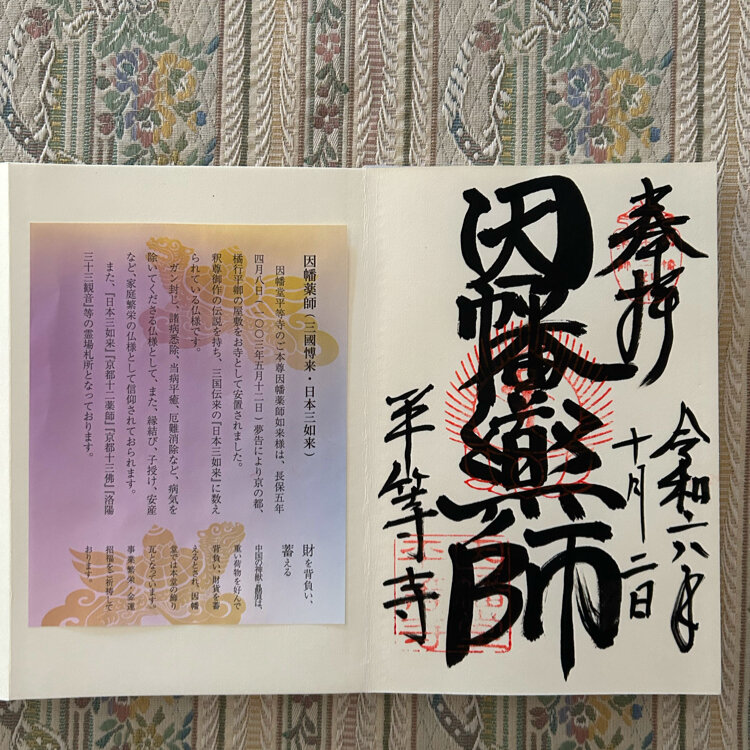 奉拝
令和六年
十月二日
因幡薬師
平等寺
因幡薬師(三國愽来・日本三如来)
因幡堂平等寺のご本尊因幡薬師如来様は、長保五年
四月八日(一〇〇三年五月十二日)夢告により京の都、
橘行平卿の屋敷をお寺として安置されました。
釈尊御作の伝説を持ち、三国伝来の『日本三如来』に数え
られている仏様です。
ガン封じ、諸病悉除、当病平癒、厄難消除など、病気を
除いてくださる仏様として、また、縁結び、子授け、安産
など、家庭繁栄の仏様として信仰されておられます。
また、『日本三如来』『京都十二薬師』『京都十三佛』『洛陽
三十三観音』等の霊場札所となっております。
財を背負い、
蓄える
中国の神獣・贔屓は、
重い荷物を好んで
背負い、財貨を蓄
えるとされ、因幡
堂では本堂の飾り
瓦になっています。
事業繁栄・金運
招福をご祈祷して
おります。